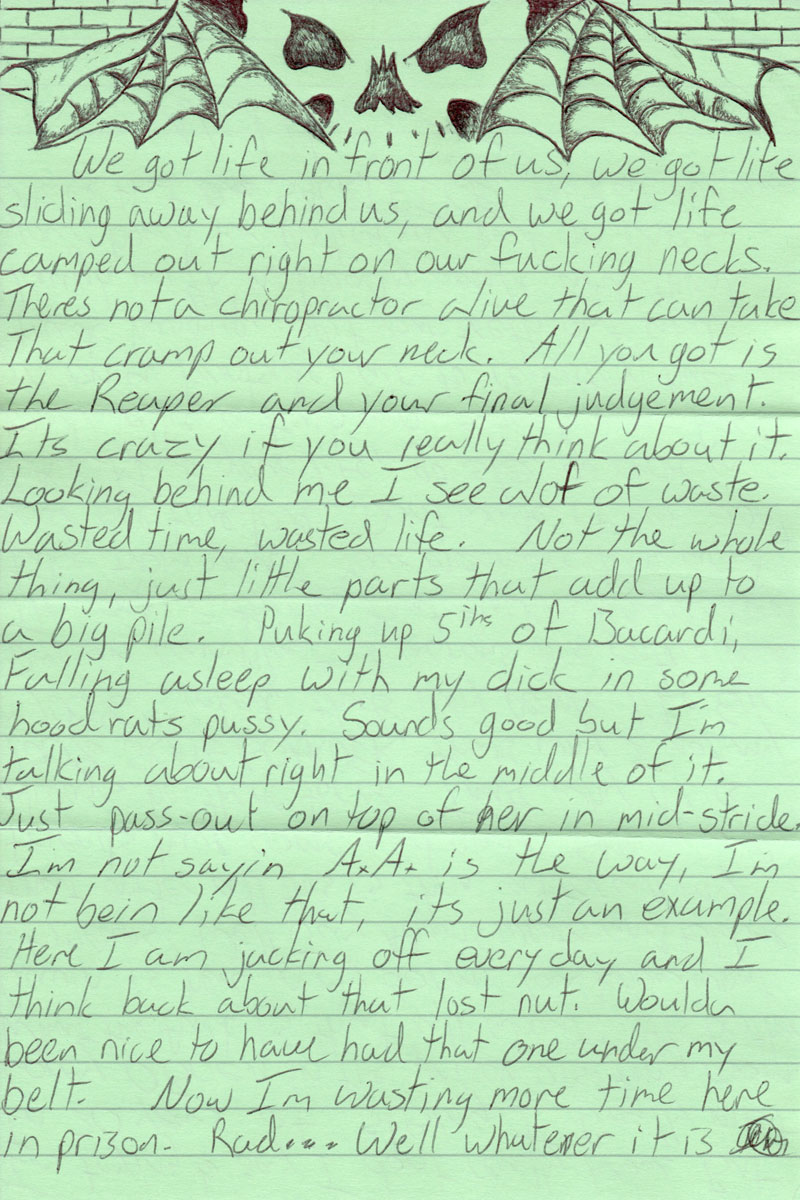 We got life in front of us, we got life
sliding away behind us, and we got life
camped out right on our fucking necks.
Theres not a chiropractor alive that can take
That cramp out your neck. All you got is
the Reaper and your final judgement.
Its crazy if you really think about it.
Looking behind me I see alot of waste.
Wasted time, wasted life. Not the whole
thing, just little parts that add up to
a big pile. Puking up 5ths of Bacardi,
Falling asleep with my dick in some
hoodrats pussy. Sounds good but I'm
talking about right in the middle of it.
Just pass-out on top of her in mid-stride.
I'm not sayin A.A. is the way, I'm
not bein like that, its just an example.
Here I am jacking off everyday and I
think back about that lost nut. Woulda
been nice to have had that one under my
belt. Now Im wasting more time here
in prison. Rad... Well whatever it is